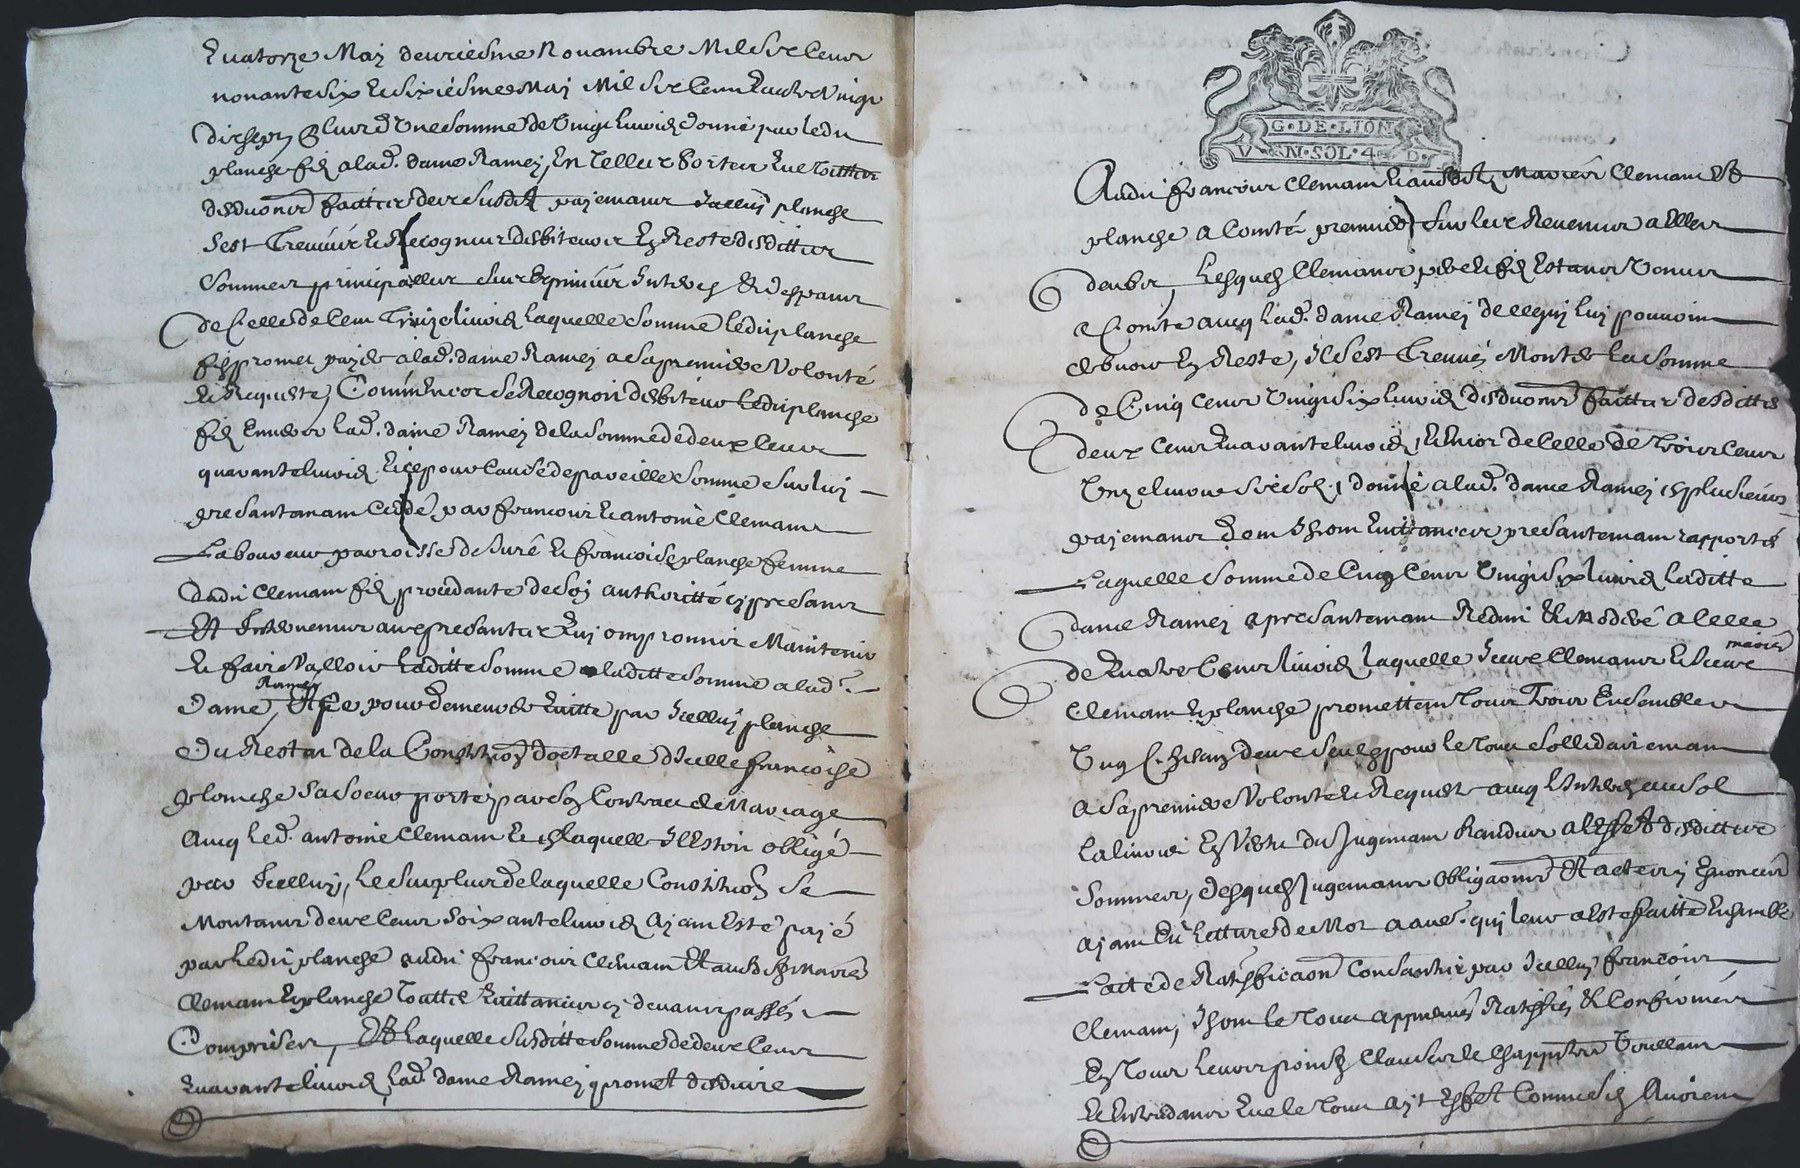 Quatorze May deuxiesme Novambre Mil Six Cens
nonante six et sixiesme May Mil Six Cens Quatre Vingt
dixsept & lautre d'Une somme de Vingt livres donné par ledit
planche fis a lad. dame Ramey, En telle sorte Que toutte
desduonr faitte des susdit payemans Icelluy planche
sest Treuvé et Recogneu debiteur En Reste desdittes
sommes principalles sur Interes & despans
de Celle de Cent Treize livres laquelle somme ledit planche
fis promet payer a lad. dame Ramey a sa premiere Volonté
et Requeste, Comm'encor se Recognoit debiteur ledit planche
fis Envers lad. dame Ramey de la somme de deux Cens
quarante livres Et ce pour Cause de pareille somme sur luy
presantemant Cedé par francois et antoine Clemans
Laboureurs parroisse de Juré et francoise planche femme
dudit Clemam fis procedante de son authoritté cy presans
Et Intervenans aux presantes Quy ont promis Maintenir
et faire Valloir laditte somme laditte somme a lad.
Dame, Ramey Et Ce pour demeurer Quitte par Icelluy planche
Du Restat de la Constituon dotalle d'Icelle francoise
planche Sa Soeur porté par son Contract de Mariage
Avecq led. antoine Clemam et en laquelle Il Estoit obligé
par Icelluy, le surplus de laquelle Constituon se
Montant deux Cens soixante livres ayant Esté payé
par ledit planche audit francois Clemam Et aud. Maries
Clemam Et planche Touttes Quittances cy devant passés
Comprises, Et laquelle susditte somme de deux Cens
Quarante livres lad. dame Ramey promet desduire
G · DE · LION
V N · SOL · 4 D ·
Audit francois Clemam Et ausdits Maries Clemam Et
planche a Comté premier sur les Revenus a Elle
deubs, Lesquels Clemans pere et fis Estans Venus
a Comte avecq lad. dame Ramey de ce quy luy pouvoint
debvoir En Reste, Il sest Treuvé Monter la somme
de Cinq Cens Vingt six livres desduons faitte desdittes
deux Cens Quarante livres, et Encor de Celle de Trois Cens
Unze livres six sols, donné a lad. dame Ramey en plusieurs
payemans dont Ils ont Quittances presantemam rapportés
Laquelle somme de Cinq Cens Vingt six livres laditte
dame Ramey a presantemam Reduit & Moderé a Celle
de Quatre Cens livres laquelle Iceux Clemans Et Iceux
maries
Clemam et planche promettent Tous Trois Ensemble
Ung C. Iceux deux seuls pour le Tout sollidairemam
a sa premiere Volonte et Requeste avecq l'Interes au sol
la livre En Vertu du Jugemam Randus a l'Effet desdittes
sommes, desquels Jugemans obligaons Et actes y Enoncés
ayant Eu lecture de Mot a aue. quy leur a Esté faitte Ensemble
Lacte de Ratifficaon Consantie par Icelluy francois
Clemam, Ils ont le Tout appreuvé Ratiffié & Confirmé
En Tous leurs poincts Clauses et Chappitres Voullam
et Entandans Que le Tout ayt Effet Comme sy Avoient